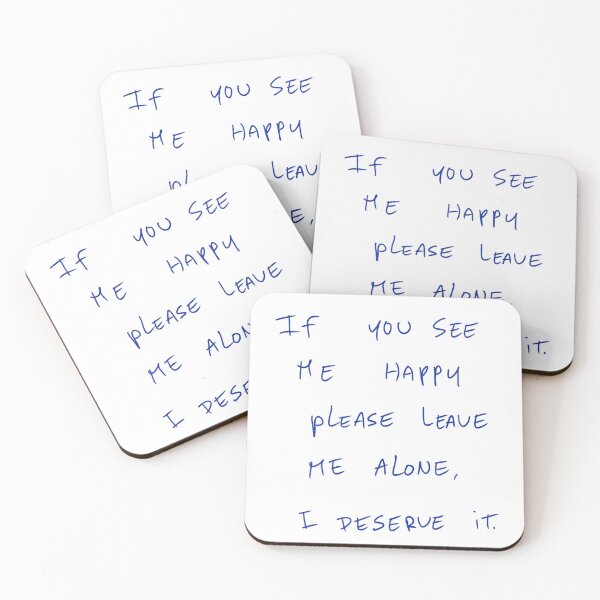 If you SEE
ME HAPPY
LEAV
E,
If you SEE
ME HAPPY
pLEASE LEAVE
ME ALONE
it.
If you SEE
ME HAPPY
pLEASE LEAVE
ME ALON
I DESER
If you SEE
ME HAPPY
pLEASE LEAVE
ME ALONE,
I DESERVE it.